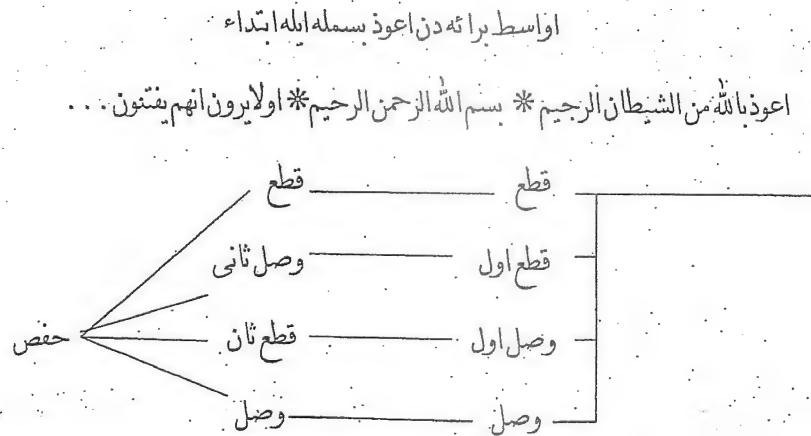 اواسط برائه دن اعوذ بسمله ايله ابتداء
اعوذ بالله من الشيطان الرجيم * بسم الله الرحمن الرحيم * اولايرون انهم يفتنون . . .
قطع قطع
قطع اول وصل ثانى
وصل اول قطع ثان
حفص
وصل وصل